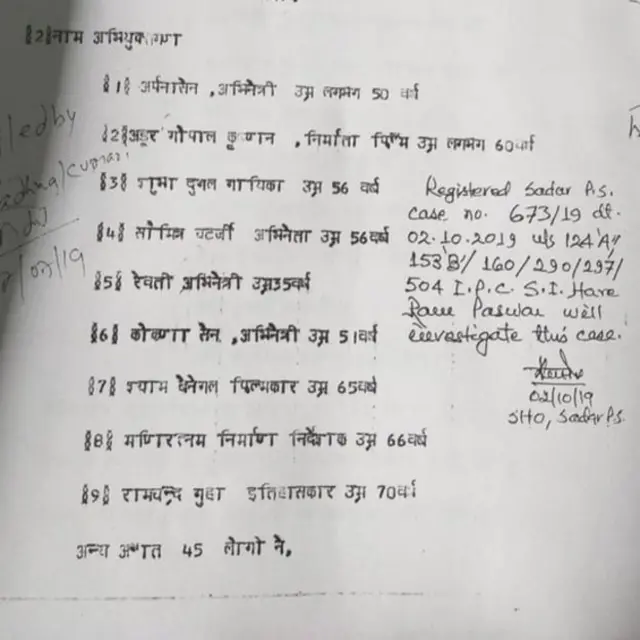 §2§नाम अभियुक्तगण
§1§ अर्पनासेन ,अभिनेत्री उम्र लगभग 50 वर्ष
§2§अडूर गोपाल कृष्णन , निर्माता फिल्म उम्र लगभग 60वर्ष
§3§ शुभा दुगल गायिका उम्र 56 वर्ष
§4§ सौमित्र चटर्जी अभिनेता उम्र 56वर्ष
§5§ रेवती अभिनेत्री उम्र35वर्ष
§6§ कोकणा सेन ,अभिनेत्री उम्र 51वर्ष
§7§ श्याम बेनेगल फिल्मकार उम्र 65वर्ष
§8§ मणिरत्नम निर्माण निर्देशक उम्र 66वर्ष
§9§ रामचन्द्र गुहा इतिहासकार उम्र 70वर्ष
अन्य अज्ञात 45 लोगो ने,
Registered Sadar P.S.
case no. 673/19 dt.
02.10.2019 u/s 124'A'/
153'B'/ 160/290/297/
504 I.P.C. S.I. Hare
Ram Paswan will
investigate this case.
02/10/19
SHO, Sadar P.S.
filed by
/03/19